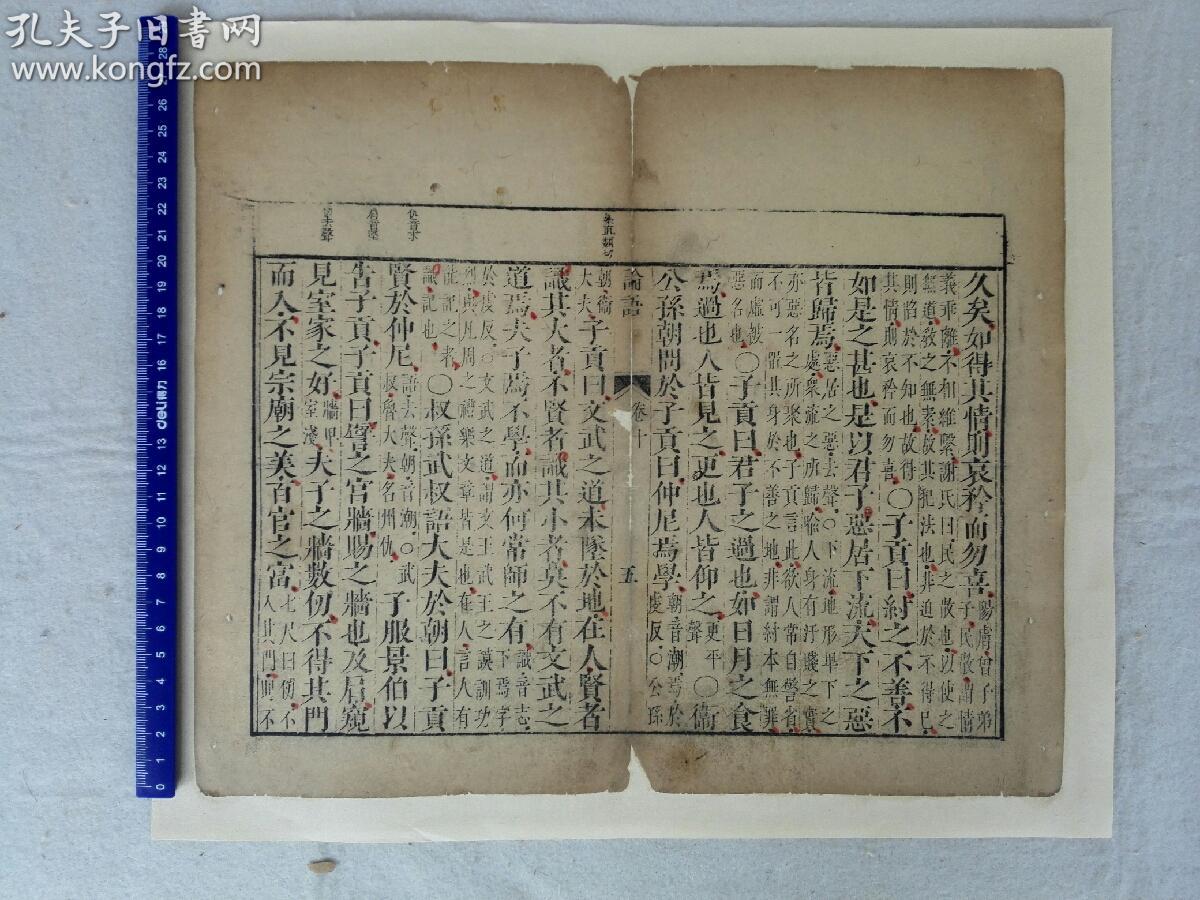 孔夫子旧书网
www.kongfz.com
deli得力
仇音求
肩音堅
久矣如得其情則哀矜而勿喜陽膚曾子弟
子民散謂情
義乖離不相維繫謝氏曰民之散也以使之
無道教之無素故其犯法也非迫於不得已
則陷於不知也故得
其情則哀矜而勿喜○子貢曰紂之不善不
如是之甚也是以君子惡居下流天下之惡
皆歸焉惡居之惡去聲○下流地形卑下之
處衆流之所歸喻人身有汙賤之實
亦惡名之所聚也子貢言此欲人常自警省
不可一置其身於不善之地非謂紂本無罪
而虛被
惡名也○子貢曰君子之過也如日月之食
焉過也人皆見之更也人皆仰之更平聲○衛
公孫朝問於子貢曰仲尼焉學朝音潮焉於
虔反○公孫
論語 卷十 五
朝衛
大夫子貢曰文武之道未墜於地在人賢者
識其大者不賢者識其小者莫不有文武之
道焉夫子焉不學而亦何常師之有識音志
下焉字
於虔反○文武之道謂文王武王之謨訓功
烈與凡周之禮樂文章皆是也在人言人有
能記之者
識記也○叔孫武叔語大夫於朝曰子貢
賢於仲尼語去聲朝音潮○武
叔魯大夫名州仇子服景伯以
告子貢子貢曰譬之宮牆賜之牆也及肩窺
見室家之好牆卑
室淺夫子之牆數仞不得其門
而入不見宗廟之美百官之富七尺曰仞不
入其門則不